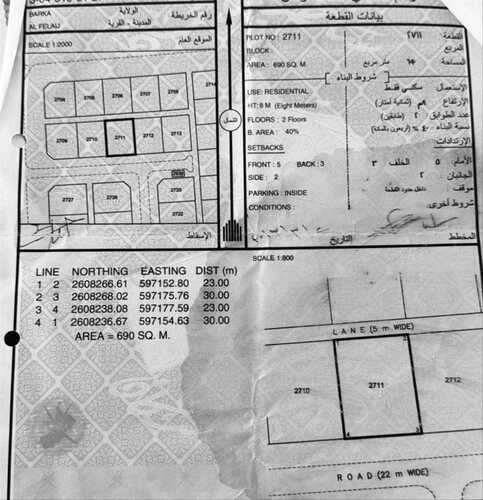 BARKA
الولاية
رقم الخريطة
AL FELAIJ
المدينة - القرية
SCALE 1:2000
الموقع العام
2714
2710
2711
2712
2713
2709
2727
2726
2720
2722
الإسقاط
الشمال
بيانات القطعة
PLOT NO : 2711
القطعة ٢٧١١
BLOCK :
المربع
AREA : 690 SQ. M.
المساحة ٦٩٠ متر مربع
شروط البناء
USE: RESIDENTIAL
الاستعمال سكني فقط
HT: 8 M (Eight Meters)
الارتفاع ٨م (ثمانية أمتار)
FLOORS : 2 Floors
عدد الطوابق ٢ (طابقين)
B. AREA : 40%
نسبة البناء ٤٠ % (أربعون بالمائة)
SETBACKS
الإرتدادات
FRONT : 5 BACK : 3
الأمام ٥ الخلف ٣
SIDE : 2
الجانبان ٢
PARKING : INSIDE
موقف داخل حدود القطعة
CONDITIONS :
شروط أخرى
التاريخ
المخطط
SCALE 1:800
LINE NORTHING EASTING DIST (m)
1 2 2608266.61 597152.80 23.00
2 3 2608268.02 597175.76 30.00
3 4 2608238.08 597177.59 23.00
4 1 2608236.67 597154.63 30.00
AREA = 690 SQ. M.
LANE (5 m WIDE)
2710
2711
2712
ROAD (22 m WIDE)